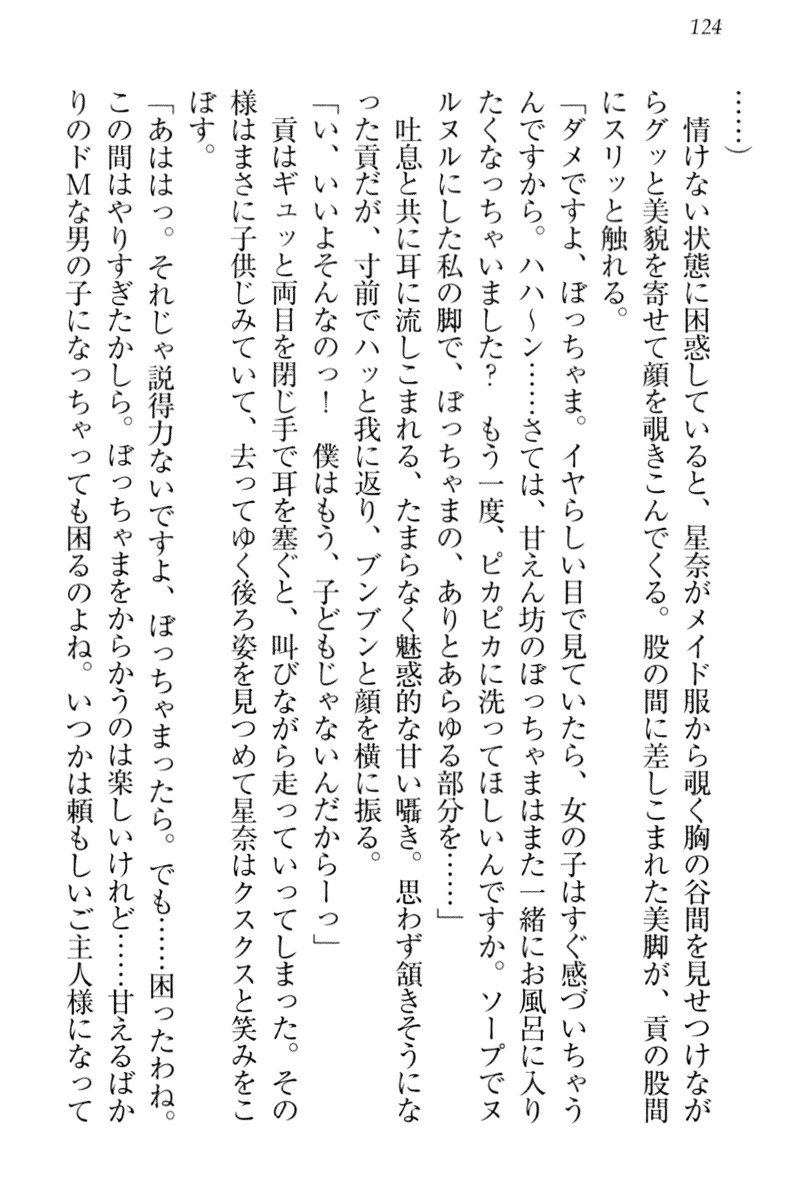 124
……）
情けない状態に困惑していると、星奈がメイド服から覗く胸の谷間を見せつけなが
らグッと美貌を寄せて顔を覗きこんでくる。股の間に差しこまれた美脚が、貢の股間
にスリッと触れる。
「ダメですよ、ぼっちゃま。イヤらしい目で見ていたら、女の子はすぐ感づいちゃう
んですから。ハハ〜ン……さては、甘えん坊のぼっちゃまはまた一緒にお風呂に入り
たくなっちゃいました？　もう一度、ピカピカに洗ってほしいんですか。ソープでヌ
ルヌルにした私の脚で、ぼっちゃまの、ありとあらゆる部分を……」
吐息と共に耳に流しこまれる、たまらなく魅惑的な甘い囁き。思わず頷きそうにな
った貢だが、寸前でハッと我に返り、ブンブンと顔を横に振る。
「い、いいよそんなのっ！　僕はもう、子どもじゃないんだからーっ」
貢はギュッと両目を閉じ手で耳を塞ぐと、叫びながら走っていってしまった。その
様はまさに子供じみていて、去ってゆく後ろ姿を見つめて星奈はクスクスと笑みをこ
ぼす。
「あははっ。それじゃ説得力ないですよ、ぼっちゃまったら。でも……困ったわね。
この間はやりすぎたかしら。ぼっちゃまをからかうのは楽しいけれど……甘えるばか
りのドMな男の子になっちゃっても困るのよね。いつかは頼もしいご主人様になって